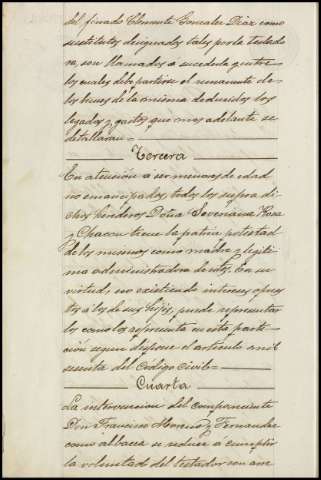 del finado Clemente Gonzalez Diaz como
sustitutos designados tales por la testado
ra, son llamados a sucederla y entre
los cuales debe partirse el remanente de
los bienes de la misma deducidos los
legados y gastos que mas adelante se
detallaran=
Tercera
En atencion a ser menores de edad
no emancipados, todos los supra di-
chos herederos Doña Severiana
y Chacon tiene la patria potestad
de los mismos como madre y legiti
ma administradora de ellos. En su
virtud, no existiendo intereses opues
tos a los de sus hijos, puede representar
los como los representa en esta parti-
ción segun dispone el articulo mil
sesenta del Codigo civil=
Cuarta
La intervencion del compareciente
Don Francisco Moreno y Fernandez
como albacea se reduce a cumplir
la voluntad del testador son am